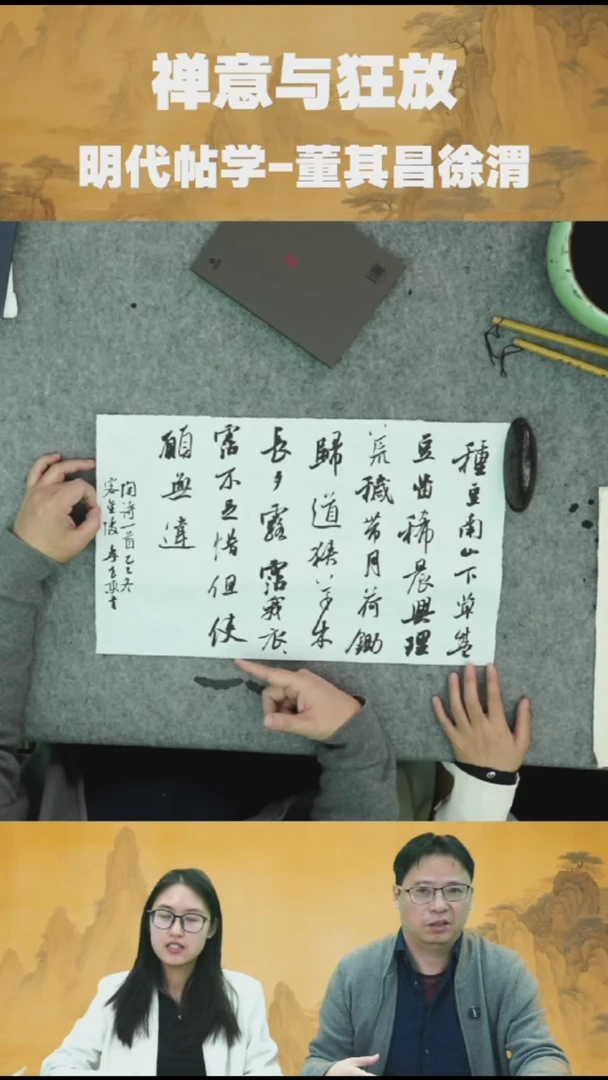 禅意与狂放
明代帖学-董其昌徐渭
種豆南山下草盛
豆苗稀晨興理
荒穢带月荷鋤
歸道狹草木
長夕露霑我衣
霑不足惜但使
願無違
陶詩一首乙巳冬
客金陵